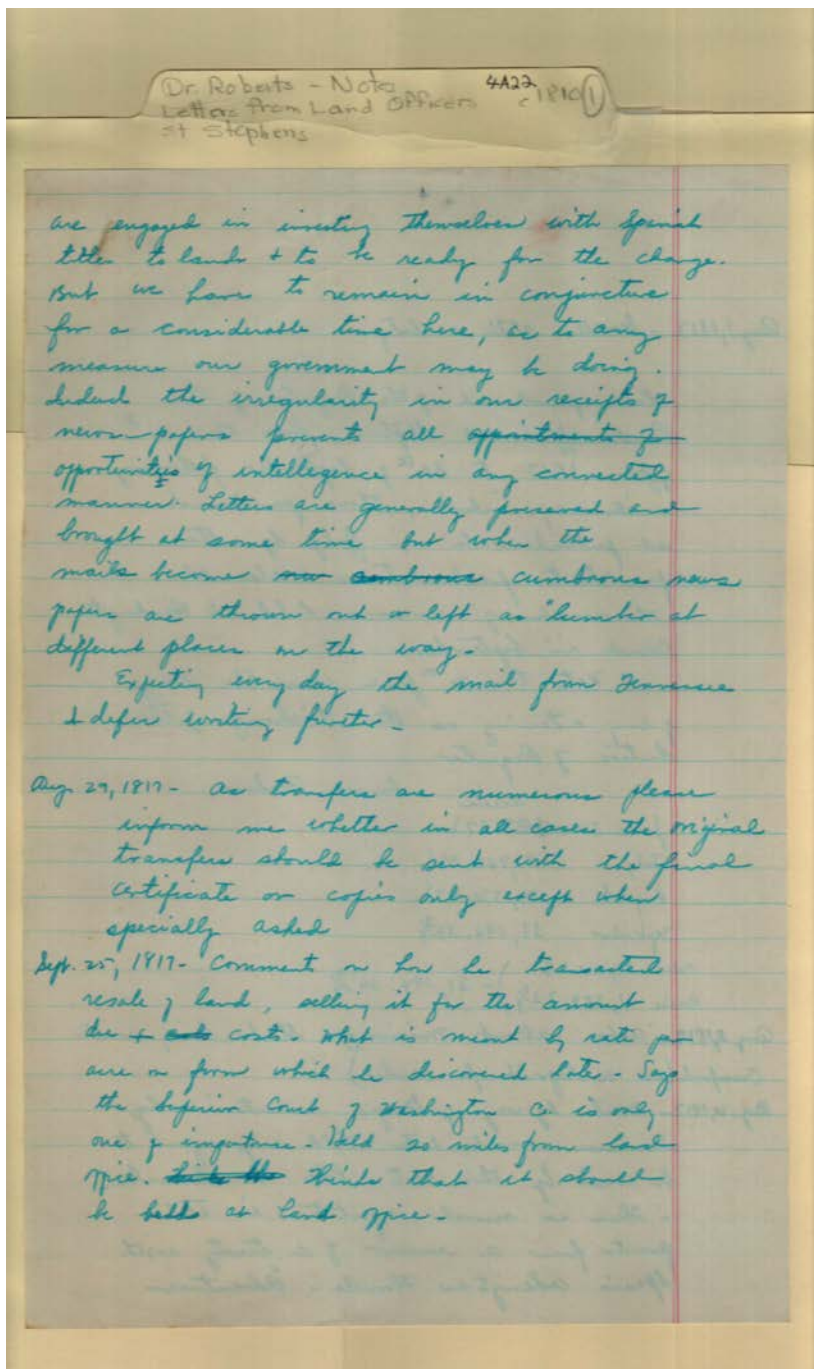 Dr. Roberts - Notes 4A22
Letters from Land Officers c 1810 1
St Stephens
are engaged in investing themselves with Spanish
titles to lands & to be ready for the change.
But we have to remain in conjuncture
for a considerable time here, as to any
measure our government may be doing.
Indeed the irregularity in our receipts of
news-papers prevents all appointments of
opportunities of intellegence in any connected
manner. Letters are generally preserved and
brought at some time but when the
mails become cumbrous cumbrous news
papers are thrown out or left as lumber at
different places on the way.
Expecting every day the mail from Tennessee
I defer writing further-
Aug. 29, 1817- As transfers are numerous please
inform me whether in all cases the original
transfers should be sent with the final
certificate or copies only except when
specially asked
Sept. 25, 1817- Comment on how he transacted
resale of land, selling it for the amount
due + costs. What is meant by rate per
acre on form which he discovered late. Says
the Superior Court of Washington Co is only
one of importance. Held 20 miles from land
office. Thinks that it should
be held at land office.